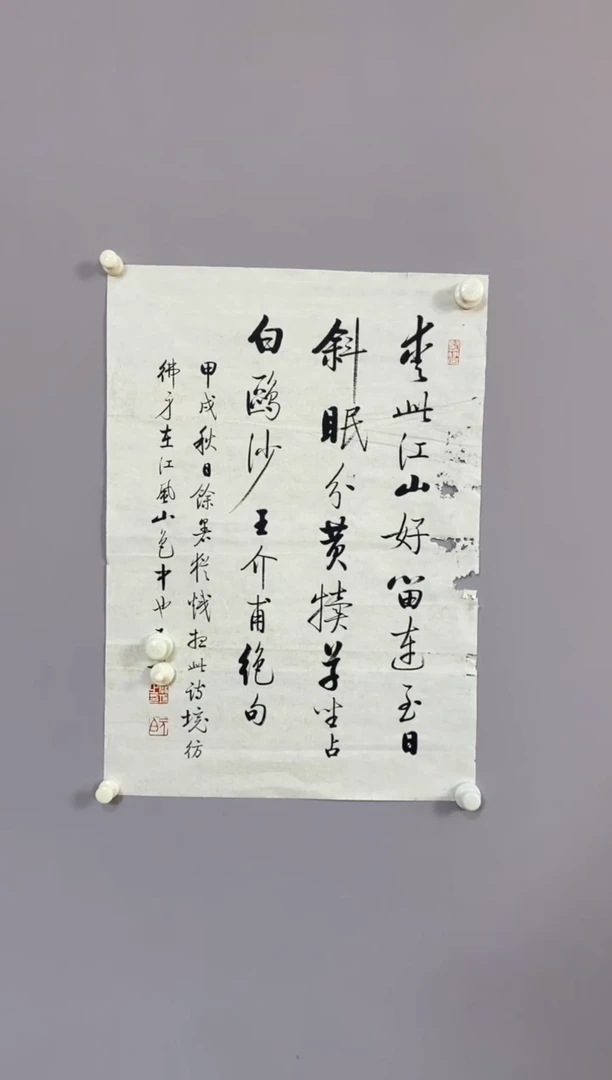 爱此江山好留连至日
斜眠分黄犊草坐占
白鸥沙王介甫绝句
甲戌秋日馀暑犹炽担此诗境彷
彿身在江风山色中也